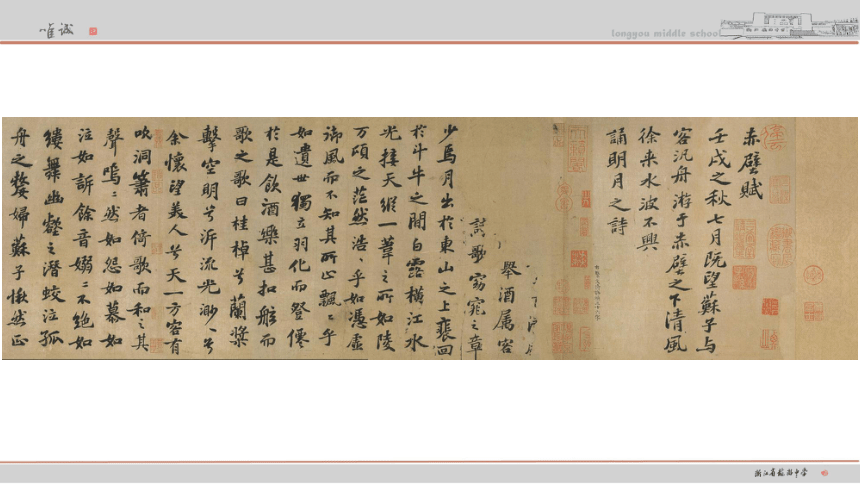 唯诚
longyou middle school
赤壁賦
壬戌之秋七月既望蘇子与
客汎舟游于赤壁之下清風
徐来水波不興
誦明月之詩
舉酒属客
歌窈窕之章
少焉月出於東山之上裴回
於斗牛之間白露横江水
光接天縱一葦之所如陵
万頃之茫然浩〻乎如憑虛
御風而不知其所止飄〻乎
如遺世獨立羽化而登僊
於是飲酒樂甚扣舷而
歌之歌曰桂棹兮蘭槳
擊空明兮泝流光渺〻兮
余懷望美人兮天一方客有
吹洞簫者倚歌而和之其
聲嗚〻然如怨如慕如
泣如訴餘音嫋〻不絕如
縷舞幽壑之潛蛟泣孤
舟之嫠婦蘇子愀然正
浙江省龙游中学